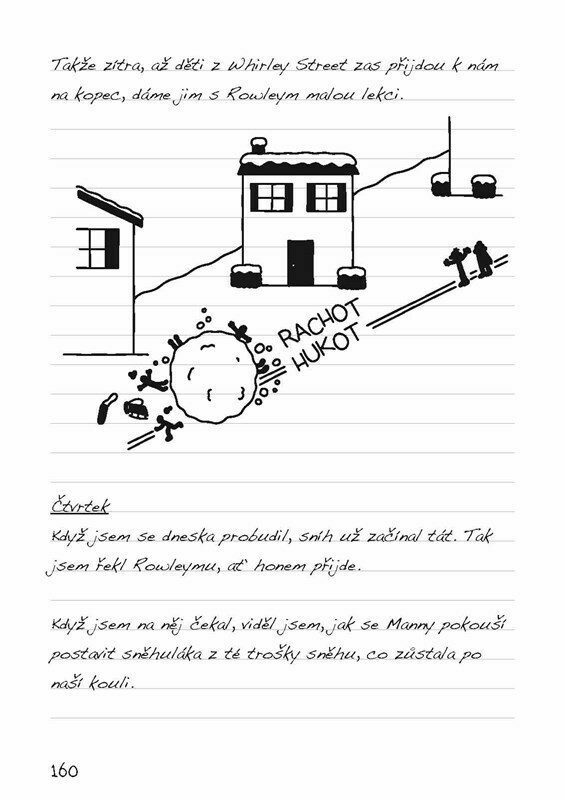 Takže zítra, až děti z Whirley Street zas přijdou k nám
na kopec, dáme jim s Rowleym malou lekci.
RACHOT
HUKOT
Čtvrtek
Když jsem se dneska probudil, sníh už začínal tát. Tak
jsem řekl Rowleymu, ať honem přijde.
Když jsem na něj čekal, viděl jsem, jak se Manny pokouší
postavit sněhuláka z té trošky sněhu, co zůstala po
naší kouli.
160